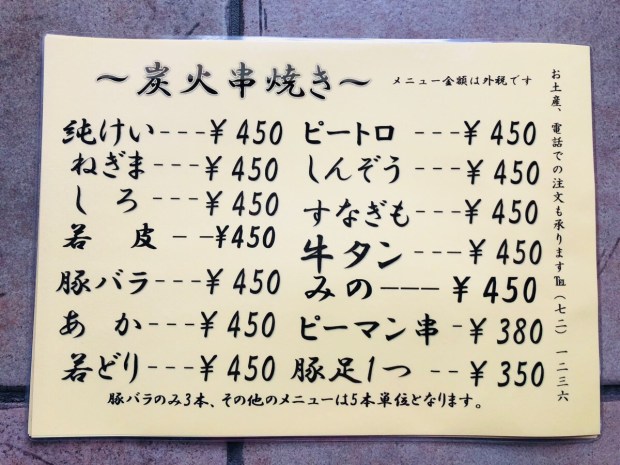 ～炭火串焼き～
メニュー金額は外税です
純けい---¥450
ねぎま---¥450
しろ---¥450
若皮---¥450
豚バラ---¥450
あか---¥450
若どり---¥450
ピートロ---¥450
しんぞう---¥450
すなぎも---¥450
牛タン---¥450
みの---¥450
ピーマン串-¥380
豚足1つ--¥350
豚バラのみ3本、その他のメニューは5本単位となります。
お土産、電話での注文も承ります℡(七二)一二三六